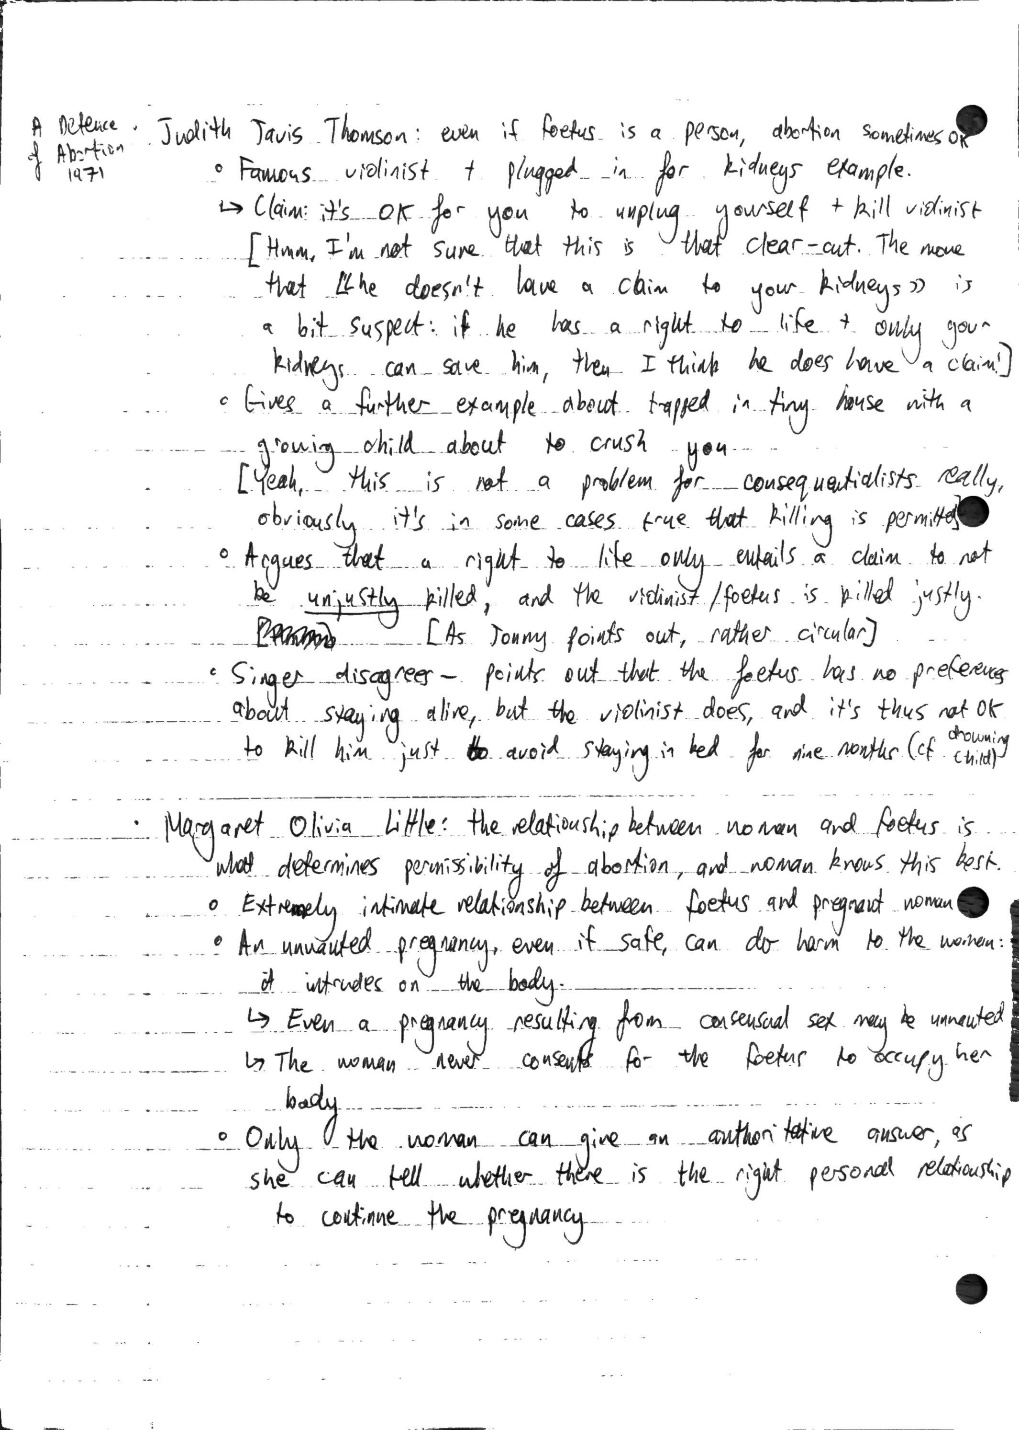 A Defence
of Abortion
1971
· Judith Javis Thomson: even if foetus is a person, abortion sometimes OK
∘ Famous violinist + plugged in for kidneys example.
↳ Claim: it's OK for you to unplug yourself + kill violinist
[Hmm, I'm not sure that this is that clear-cut. The move
that «he doesn't have a claim to your kidneys» is
a bit suspect: if he has a right to life + only your
kidneys can save him, then I think he does have a claim!]
∘ Gives a further example about trapped in tiny house with a
growing child about to crush you
[Yeah, this is not a problem for consequentialists really,
obviously it's in some cases true that killing is permitted]
∘ Argues that a right to life only entails a claim to not
be unjustly killed, and the violinist/foetus is killed justly.
[As Jonny points out, rather circular]
∘ Singer disagrees – points out that the foetus has no preferences
about staying alive, but the violinist does, and it's thus not OK
to kill him just to avoid staying in bed for nine months (cf drowning
child)
· Margaret Olivia Little: the relationship between woman and foetus is
what determines permissibility of abortion, and woman knows this best.
∘ Extremely intimate relationship between foetus and pregnant woman
∘ An unwanted pregnancy, even if safe, can do harm to the woman:
it intrudes on the body.
↳ Even a pregnancy resulting from consensual sex may be unwanted
↳ The woman never consents for the foetus to occupy her
body
∘ Only the woman can give an authoritative answer, as
she can tell whether there is the right personal relationship
to continue the pregnancy